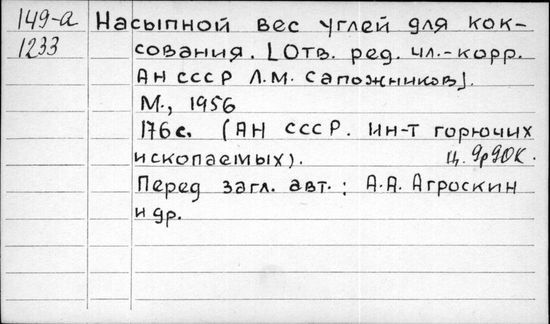 149-а Насыпной вес углей для кок-
1233 сования. [Отв. ред. чл.-корр.
АН СССР Л.М. Сапожников].
М., 1956
176 с. (АН СССР. Ин-т горючих
ископаемых). Ц. 9р90к.
Перед загл. авт.: А.А. Агроскин
и др.